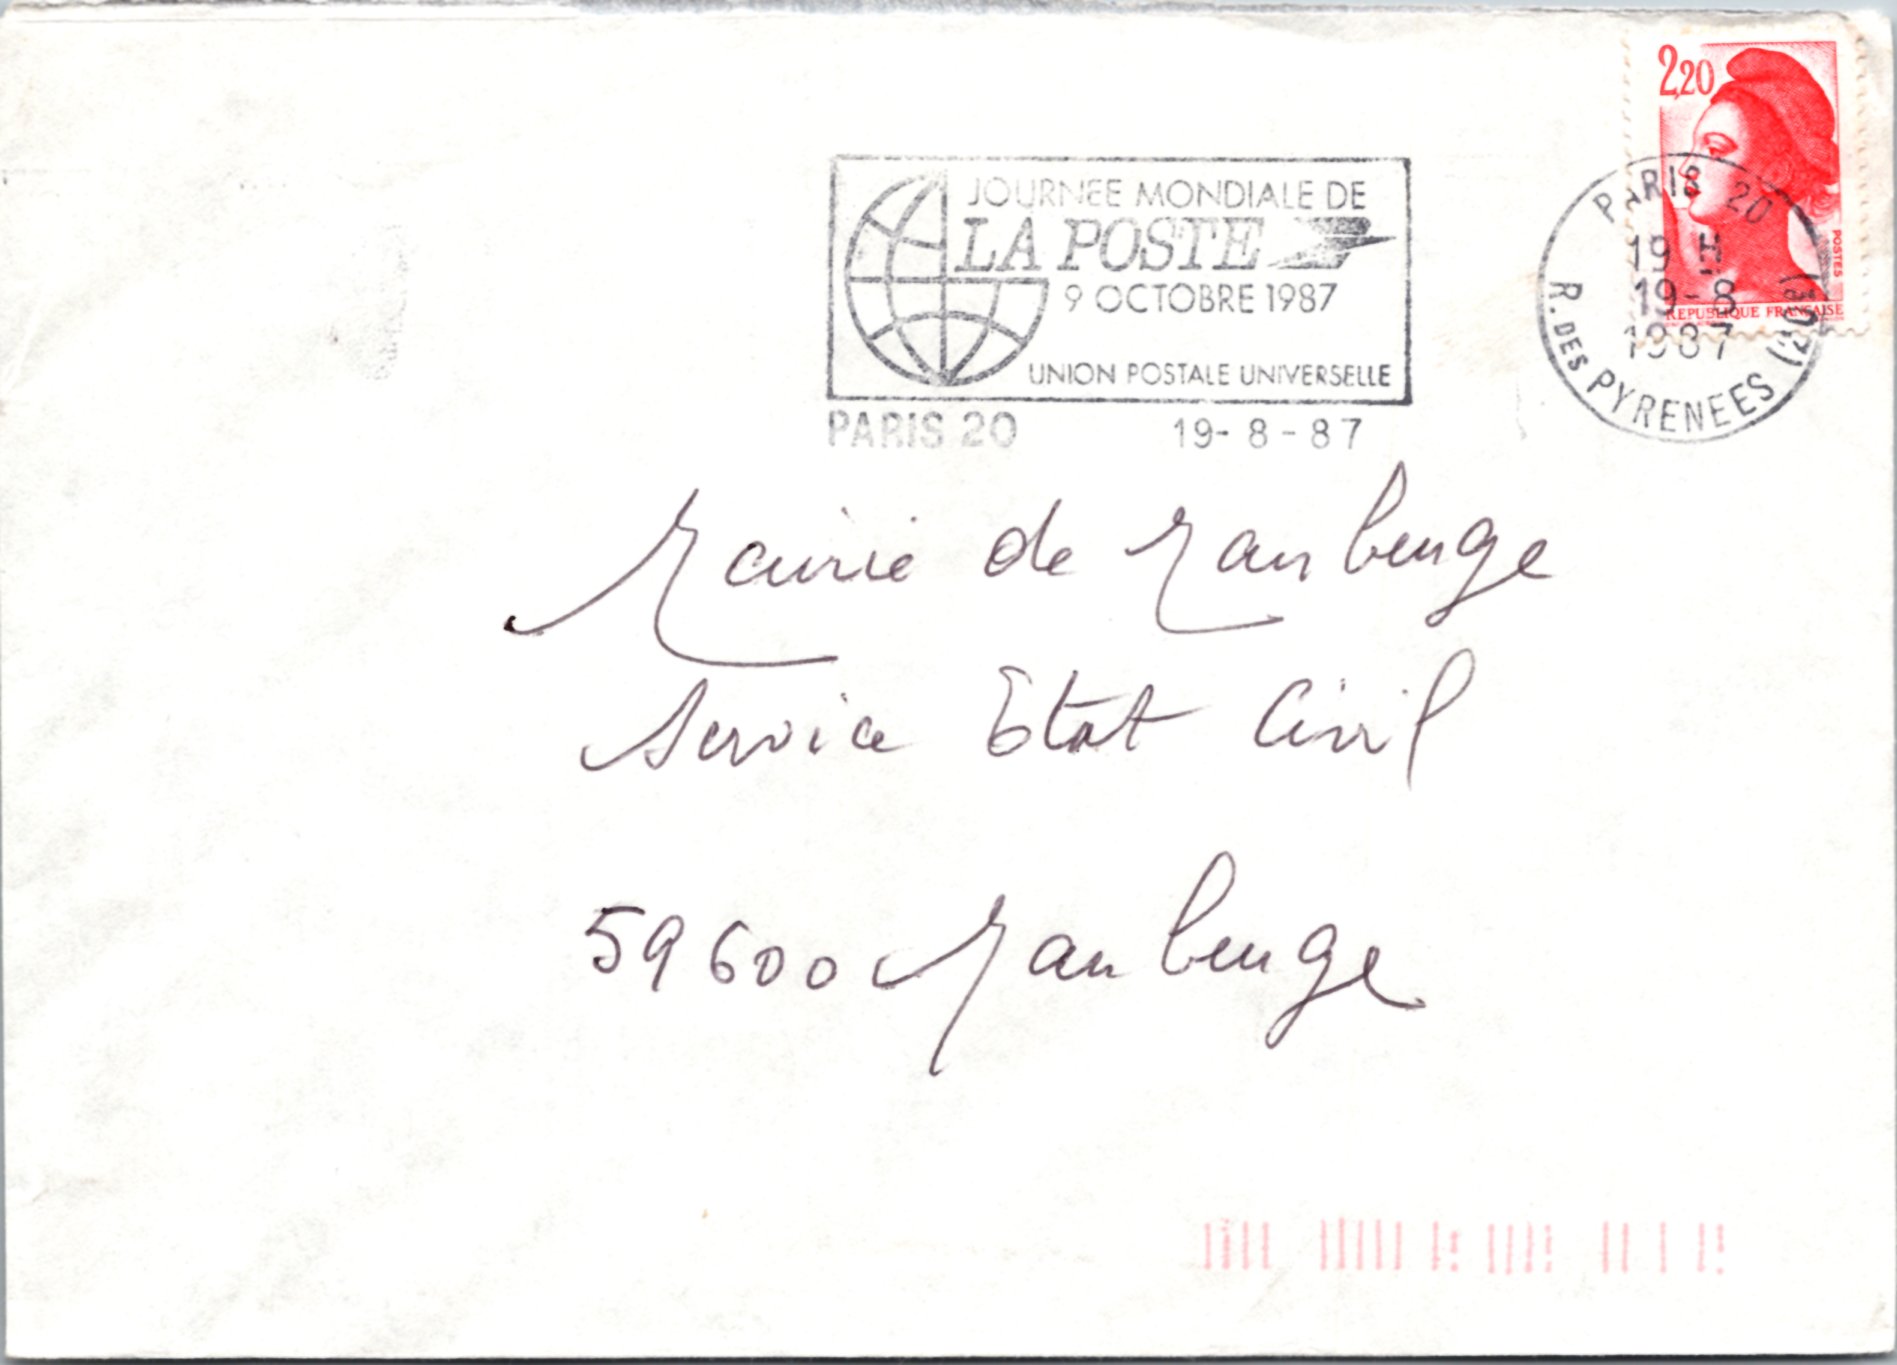 2,20
POSTES
REPUBLIQUE FRANÇAISE
JOURNEE MONDIALE DE
LA POSTE
9 OCTOBRE 1987
UNION POSTALE UNIVERSELLE
PARIS 20 19-8-87
PARIS 20
19 H
19-8
1987
R. DES PYRENEES
Mairie de Maubeuge
Service Etat Civil
59600 Maubeuge